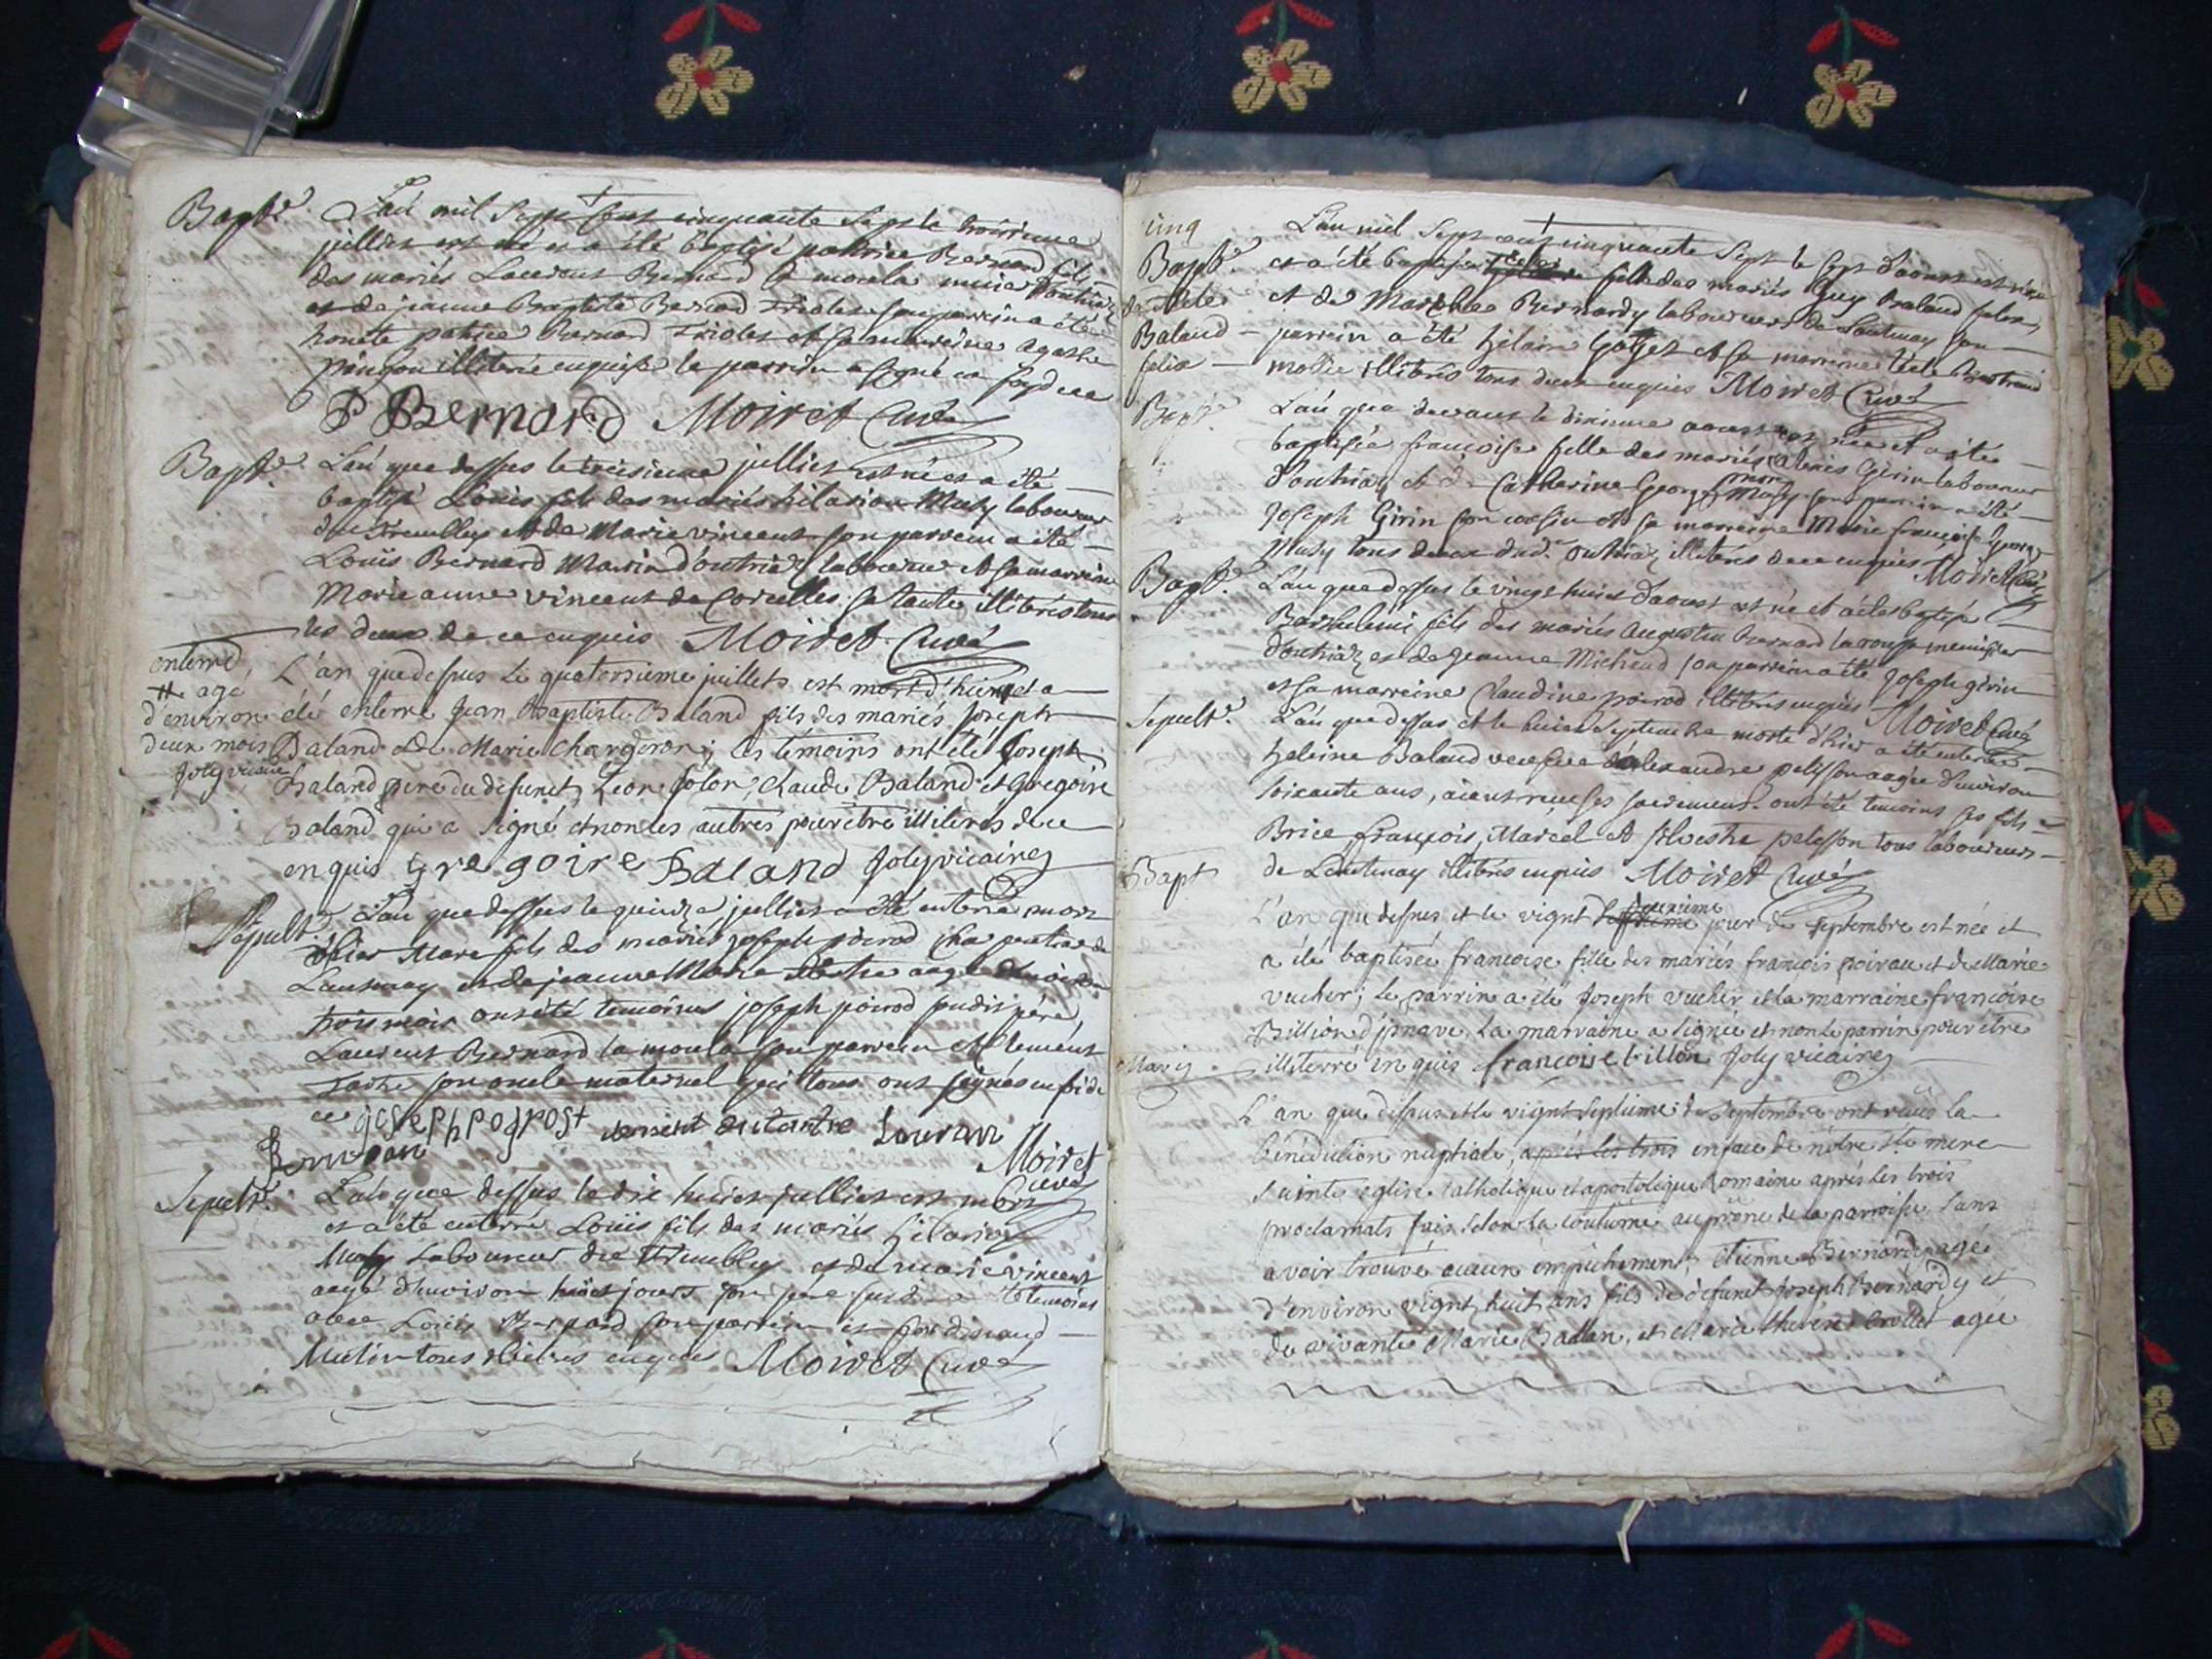 Bapt.e L'an mil Sept cent cinquante Sept le troisieme
juillet est né et a été baptisé patrice Bernard fils
des mariés Laurent Bernard la moula d'outriaz
et de jeanne Baptiste Bernard son parrein a été
honete patrice Bernard et sa marreine agathe
illiterée enquise le parrein a signé
P Bernard Moiret Curé
Bapt.e L'an que dessus le treisieme juillet est né et a été
baptisé Louis fils des mariés hilarion Musy laboureur
du Trembley et de Marie vincent son parrein a été
Louis Bernard Marin d'outriaz laboureur et sa marreine
Marie anne vincent de Corcelles sa tante illiterés tous
les deux de ce enquis Moiret Curé
enterré L'an que dessus le quatorsieme juillets est mort d'hier et a
agé
d'environ été enterré Jean Baptiste Baland fils des mariés joseph
deux mois Baland et de Marie Chargeron; les témoins ont été Joseph
Joly vicaire Baland pere du defunct, Leon folon, Claude Baland et Gregoire
Baland qui a signé et non les autres pour être illiterés de ce
enquis gregoire Baland Joly vicaire
Sepult.e L'an que dessus le quinze juillet a été enterré mort
d'hier Marc fils des mariés joseph poirod
Lantenay et de jeanne Marie agé d'environ
trois mois ont été temoins joseph poirod sudit père,
Laurent Bernard la moula son parrein et Clement
son oncle maternel qui tous ont signés en foi de
ce
Moiret
Curé
Sepult.e L'an que dessus le dix huict juillet est mort
et a été enterré Louis fils des mariés hilarion
Musy Laboureur du Trembley et de marie vincent
agé d'environ huict jours son pere a été temoins
avec Louis Bernard son parrein et
tous illiterés enquis Moiret Curé
cinq
L'an mil Sept cent cinquante Sept le Sept d'aoust est née
Bapt.e et a été baptisée fille des mariés Guy Baland felix
et de Marthe Bernardy laboureurs de Lantenay son
Baland parrein a été hilaire et sa marreine
felix illiterés tous deux enquis Moiret Curé
Bapt.e L'an que devant le dixieme aoust est née et a été
baptisée françoise fille des mariés alexis Girin laboureur
d'outriaz et de Catherine George Musy son parrein a été
Joseph Girin son cousin et sa marreine Marie françoise George
Musy tous deux dud.t outriaz illiterés de ce enquis Moiret Curé
Bapt.e L'an que dessus le vingt huict d'aoust est né et a été batisé
Barthelemi fils des mariés augustin Bernard
d'outriaz et de jeanne Michaud son parrein a été joseph girin
et sa marreine Claudine poirod illiterés enquis Moiret Curé
Sepult.e L'an que dessus et le huict Septembre morte d'hier a été enterrée
heleine Baland veufve d'alexandre pelisson agée d'environ
soixante ans, aiant receu ses sacremens. ont été temoins ses fils
Brice, françois, Marcel et silvestre pelisson tous laboureurs
de Lantenay illiterés enquis Moiret Curé
Bapt
L'an que dessus et le vignt deuxieme jour de septembre est née et
a été baptisée françoise fille des mariés françois poirau et de Marie
vucher; le parrin a été Joseph vucher et la marraine françoise
Billion d'jznave, la marraine a signée et non le parrin pour être
illiterré enquis françoise billon Joly vicaire
Mariage
L'an que dessus et le vignt septieme de septembre ont reçus la
bénédiction nuptiale, après les trois en face de nôtre S.te mere
sainte église catholique et apostolique Romaine après les trois
proclamats fais selon la coutume au prône de la parroisse sans
avoir trouvé aucun empêchement; Etienne Bernardy agé
d'environ vignt huit ans fils de defunct Joseph Bernardy et
de vivante Marie Ballan, et Marie thérèse Crollet agée